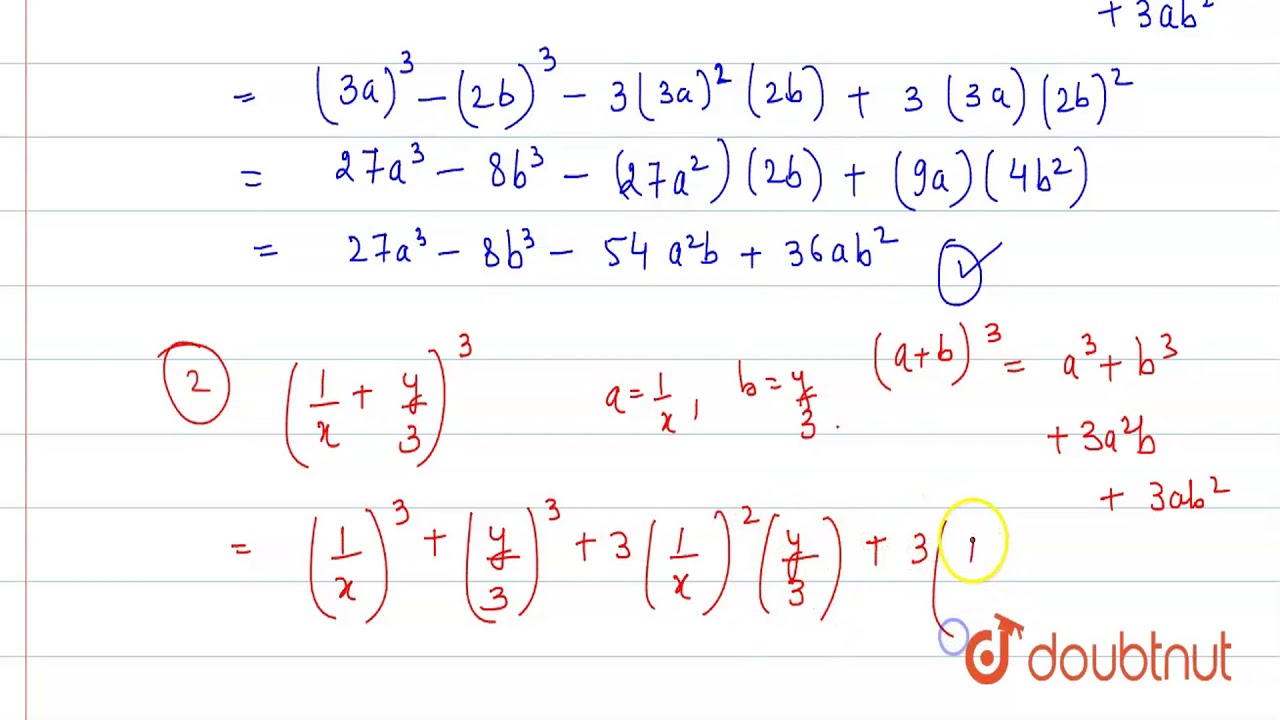 + 3ab²
= (3a)³ – (2b)³ – 3(3a)² (2b) + 3 (3a) (2b)²
= 27a³ – 8b³ – (27a²) (2b) + (9a) (4b²)
= 27a³ – 8b³ – 54 a²b + 36ab²
② (1/x + y/3)³ a = 1/x, b = y/3. (a+b)³ = a³ + b³
+ 3a²b
+ 3ab²
= (1/x)³ + (y/3)³ + 3 (1/x)² (y/3) + 3 (1
doubtnut